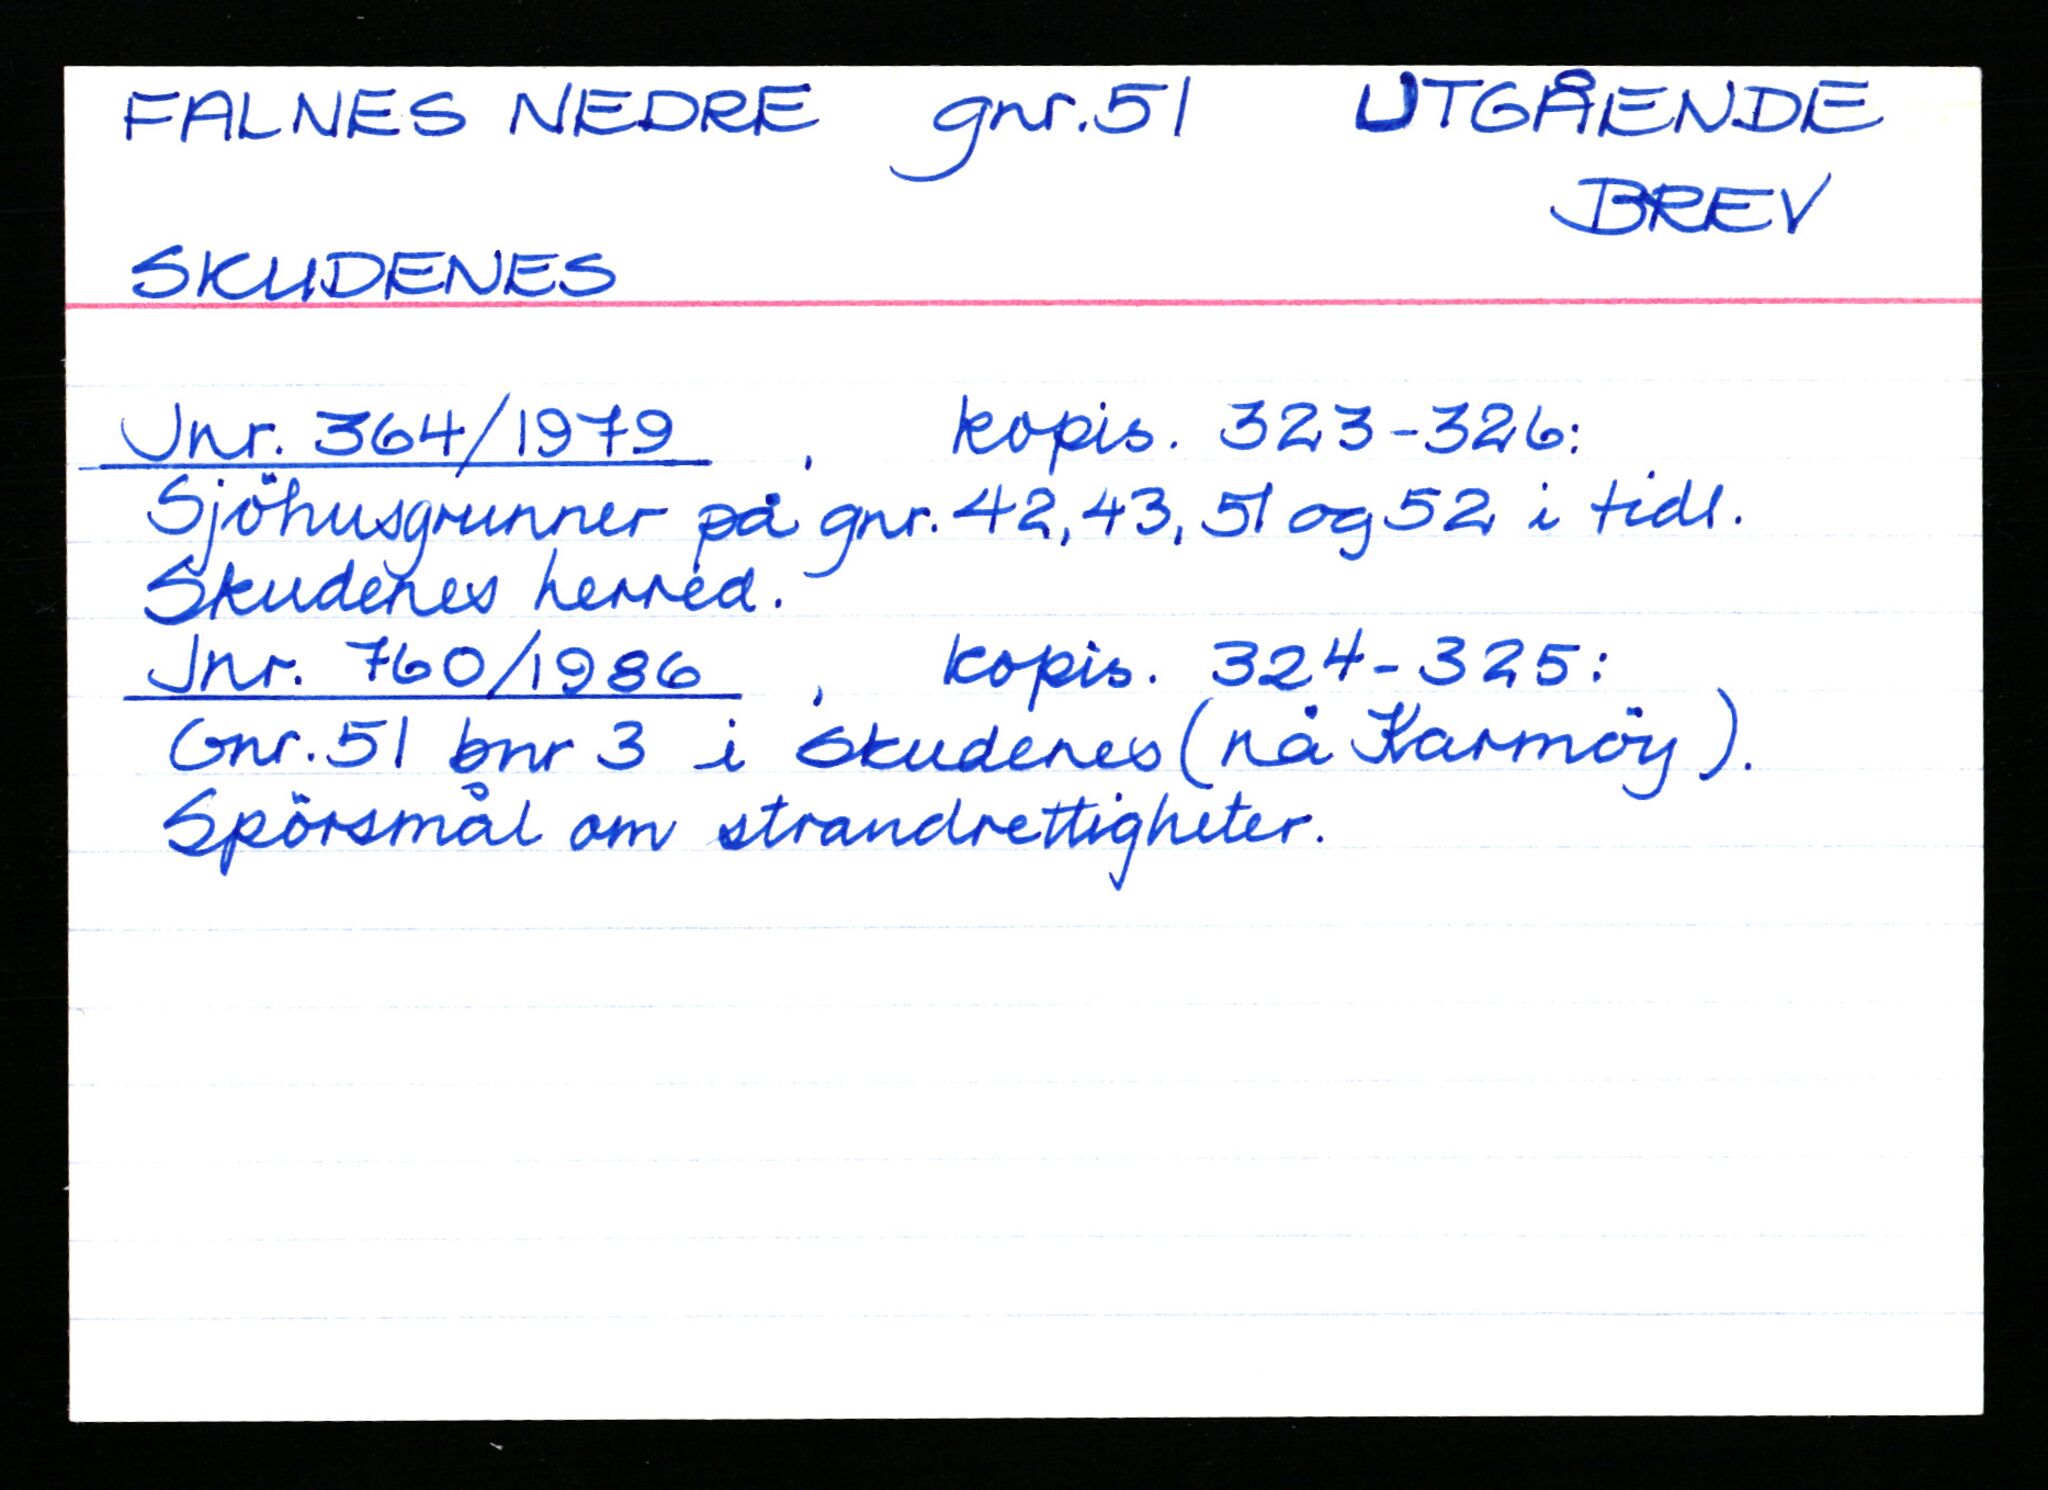 FALNES NEDRE gnr. 51 UTGÅENDE
BREV
SKUDENES
Jnr. 364/1979, kopis. 323-326:
Sjöhusgrunner på gnr. 42, 43, 51 og 52 i tidl.
Skudenes herred.
Jnr. 760/1986, kopis. 324-325:
Gnr. 51 bnr 3 i Skudenes (nå Karmöy).
Spörsmål om strandrettigheter.